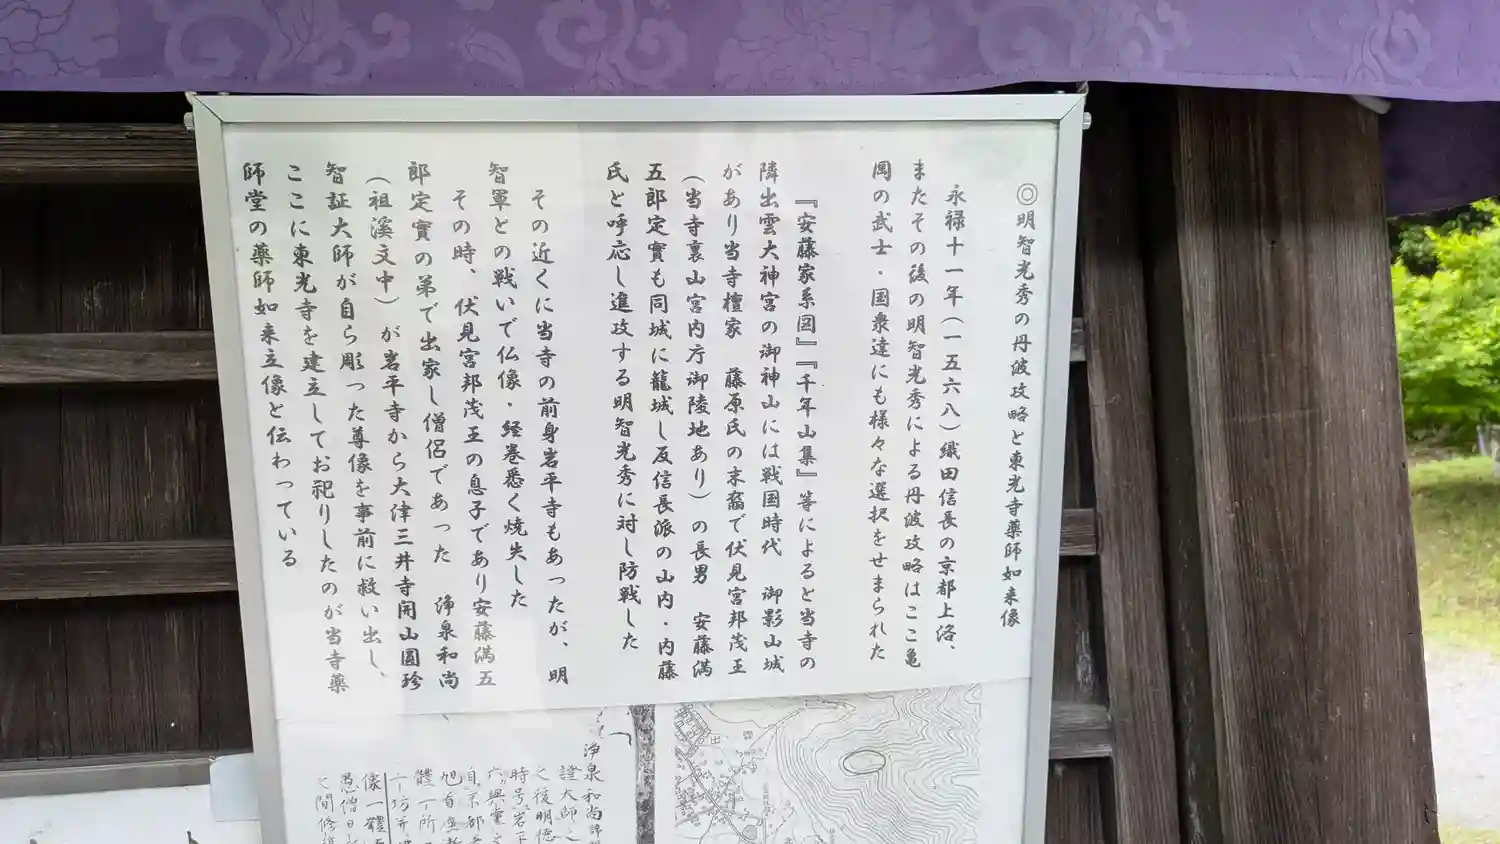 ◎明智光秀の丹波攻略と東光寺薬師如来像
永禄十一年(一五六八)織田信長の京都上洛、
またその後の明智光秀による丹波攻略はここ亀
岡の武士・国衆達にも様々な選択をせまられた
『安藤家系図』『千年山集』等によると当寺の
隣出雲大神宮の御神山には戦国時代 御影山城
があり当寺檀家 藤原氏の末裔で伏見宮邦茂王
(当寺裏山宮内庁御陵地あり)の長男 安藤満
五郎定實も同城に籠城し反信長派の山内・内藤
氏と呼応し進攻する明智光秀に対し防戦した
その近くに当寺の前身岩平寺もあったが、明
智軍との戦いで仏像・経巻悉く焼失した
その時、伏見宮邦茂王の息子であり安藤満五
郎定實の弟で出家し僧侶であった 浄泉和尚
(祖溪文中)が岩平寺から大津三井寺開山圓珍
智証大師が自ら彫った尊像を事前に救い出し、
ここに東光寺を建立してお祀りしたのが当寺薬
師堂の薬師如来立像と伝わっている
浄泉和尚
證大師之
之後明徳
時号岩平